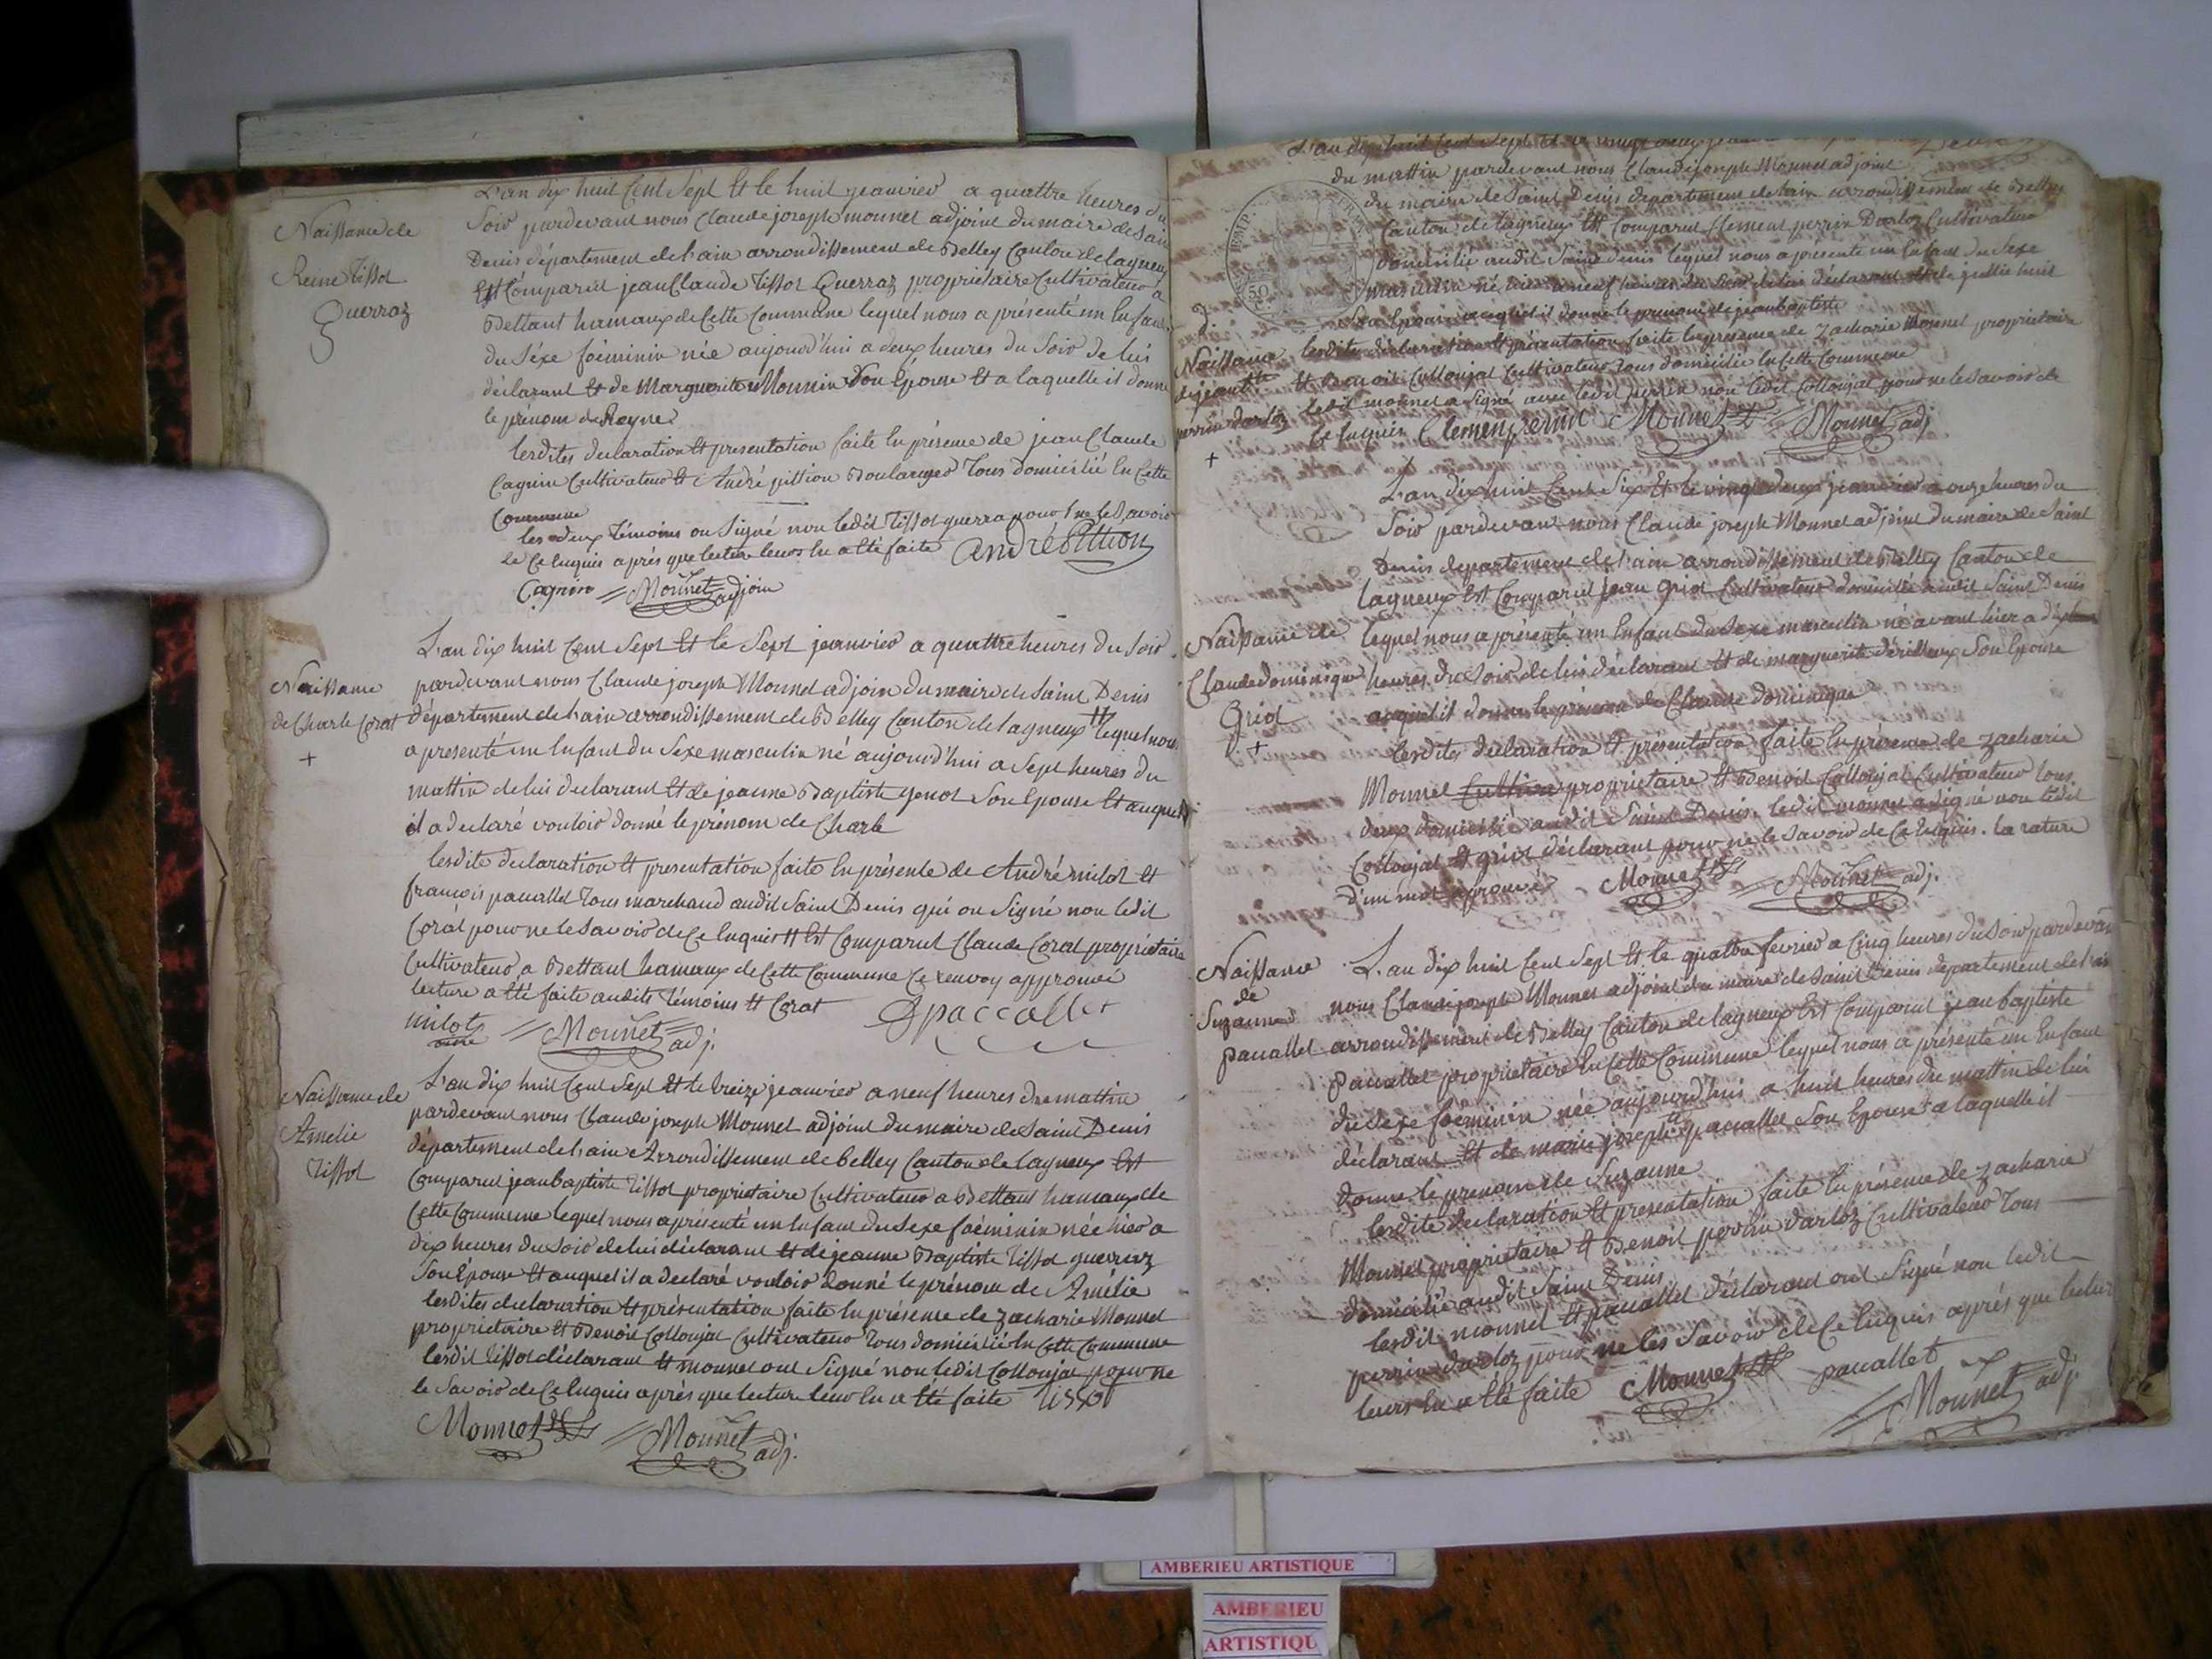 L'an dix huit Cent Sept et le huit jeanvier a quattre heures du
Naissance de
Reine Tissot
Guerraz
Soir pardevant nous Claude joseph monnet adjoint du maire de Sain
Denis département de l'ain arrondissement de Belley Canton de lagneux
Est Comparut jean Claude Tissot Guerraz propriétaire Cultivateur a
Bettant hamaux de Cette Commune lequel nous a présenté un Enfant
du Séxe féeminin née aujourd'hui a deux heures du Soir de lui
déclarant Et de Marguerite Monnin Son Epouse Et a laquelle il donne
le prénom de Reyne
lesdites declaration Et presentation faite En présence de jean Claude
Cagnin Cultivateur Et André pittion Boulanger Tous domicilié En Cette
Commune
les deux Témoins on Signé non ledit Tissot guerra pour ne le Savoir
de Ce Enquis aprés que lecture leurs En a été faite André Pittion
Cagnin Monnet adjoin
L'an dix huit Cent Sept Et le Sept jeanvier a quattre heures du Soir
Naissance
de Charle Corat
+
pardevant nous Claude joseph Monnet adjoin du maire de Saint Denis
département de l'ain arrondissement de Belley Canton de lagneux # lequel nous
a presenté un Enfant du Sexe masculin né aujourd'hui a Sept heures du
mattin de lui declarant Et de jeanne Baptiste genot Son Epouse Et auquel
il a declaré vouloir donné le prénom de Charle
lesdite declaration Et presentation faite En présence de André milot Et
françois pacallet Tous marchand audit Saint Denis qui on Signé non ledit
Corat pour ne le Savoir de Ce Enquis # Est Comparut Claude Corat propriétaire
Cultivateur a Bettant hamaux de Cette Commune Ce renvoy approuvé
lecture a été faite audits Témoins Et Corat
milot Monnet adj. pacallet
Naissance de
Amelie
Tissot
L'an dix huit Cent Sept Et le treize jeanvier a neuf heures du mattin
pardevant nous Claude joseph Monnet adjoint du maire de Saint Denis
département de l'ain Arrondissement de belley Canton de lagneux Est
Comparut jean baptiste Tissot propriétaire Cultivateur a Bettant hamaux de
Cette Commune lequel nous a présenté un Enfant du Sexe féeminin née hier a
dix heures du Soir de lui déclarant Et de jeanne Baptiste Tissot guerraz
Son Epouse Et auquel il a declaré vouloir donné le prénom de Amélie
lesdites declaration Et présentation faite En présence de Zacharie Monnet
propriétaire Et Benoit Collonjat Cultivateur Tous domicilié En Cette Commune
lesdit Tissot déclarant Et monnet ont Signé non ledit Collonjat pour ne
le Savoir de Ce Enquis aprés que lecture leur En a été faite Tissot
Monnet Monnet adj.
L'an dix huit Cent Sept Et le vingt deux
du mattin pardevant nous Claude joseph Monnet adjoint
du maire de Saint Denis département de l'ain arrondissement de Belley
Canton de lagneux Est Comparut Clement perrin Darloz Cultivateur
domicilié audit Saint denis lequel nous a présenté un Enfant du Sexe
masculin né hier a neuf heures du Soir de lui déclarant Et de
Son Epouse auquel il donne le prénom de jean baptiste
Naissance
de jean Bte
perrin darloz
+
lesdites déclaration Et présentation faite En présence de Zacharie Monnet propriétaire
Et Benoit Collonjat Cultivateur Tous domicilié En Cette Commune
ledit monnet a Signé avec ledit perrin non ledit Collonjat pour ne le Savoir de
Ce Enquis Clemen perrin Monnet Monnet adj
L'an dix huit Cent Six Et le vingt deux jeanvier a onze heures du
Soir pardevant nous Claude joseph Monnet adjoint du maire de Saint
Denis département de l'ain arrondissement de Belley Canton de
lagneux Est Comparut jean Griot Cultivateur domicilié audit Saint Denis
Naissance de
Claude dominique
Griot
+
lequel nous a présenté un Enfant du Sexe masculin né avant hier a dix
heures du Soir de lui déclarant Et de marguerite Son Epouse
auquel il donne le prénom de Claude dominique
lesdites declaration Et présentation faite En présence de Zacharie
Monnet Cultiva propriétaire Et Benoit Collonjat Cultivateur tous
deux domicilié audit Saint Denis. ledit monnet a Signé non ledit
Collonjat Et griot déclarant pour ne le Savoir de Ce Enquis. la rature
d'un mot aprouvé Monnet Monnet adj.
Naissance
de
Suzanne
pacallet
L'an dix huit Cent Sept Et le quattre fevrier a Cinq heures du Soir pardevan
nous Claude joseph Monnet adjoint du maire de Saint Denis département de l'ain
arrondissement de Belley Canton de lagneux Est Comparut jean baptiste
pacallet propriétaire En Cette Commune lequel nous a présenté un Enfant
du Sexe féeminin née aujourd'hui a huit heures du mattin de lui
déclarant Et de marie josephte pacallet Son Epouse a laquelle il
donne le prenom de Suzanne
lesdite declaration Et presentation faite En présence de Zacharie
Monnet propriétaire Et Benoit perrin darloz Cultivateur Tous
domicilié audit Saint Denis
lesdit monnet Et pacallet déclarant ont Signé non ledit
perrin darloz pour ne les Savoir de Ce Enquis aprés que lectur
leurs En a été faite Monnet pacallet
Monnet adj.
AMBERIEU ARTISTIQUE
AMBERIEU
ARTISTIQU